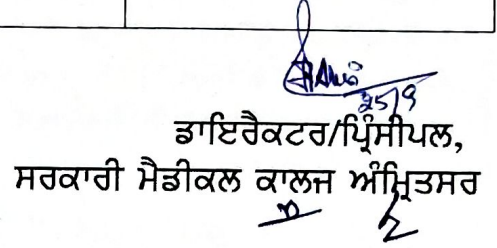 25/9
ਡਾਇਰੈਕਟਰ/ਪ੍ਰਿੰਸੀਪਲ,
ਸਰਕਾਰੀ ਮੈਡੀਕਲ ਕਾਲਜ ਅੰਮ੍ਰਿਤਸਰ